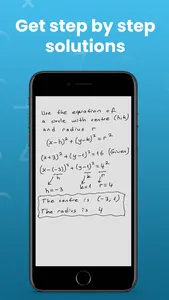 Get step by step
solutions
Use the equation of
a circle with centre (h,k)
and radius r
(x-h)²+(y-k)²=r²
(x+3)²+(y-1)²=16 (Given)
(x-(-3))²+(y-1)²=4²
h k r
h=-3 k=1 r=4
The centre is (-3,1)
The radius is 4